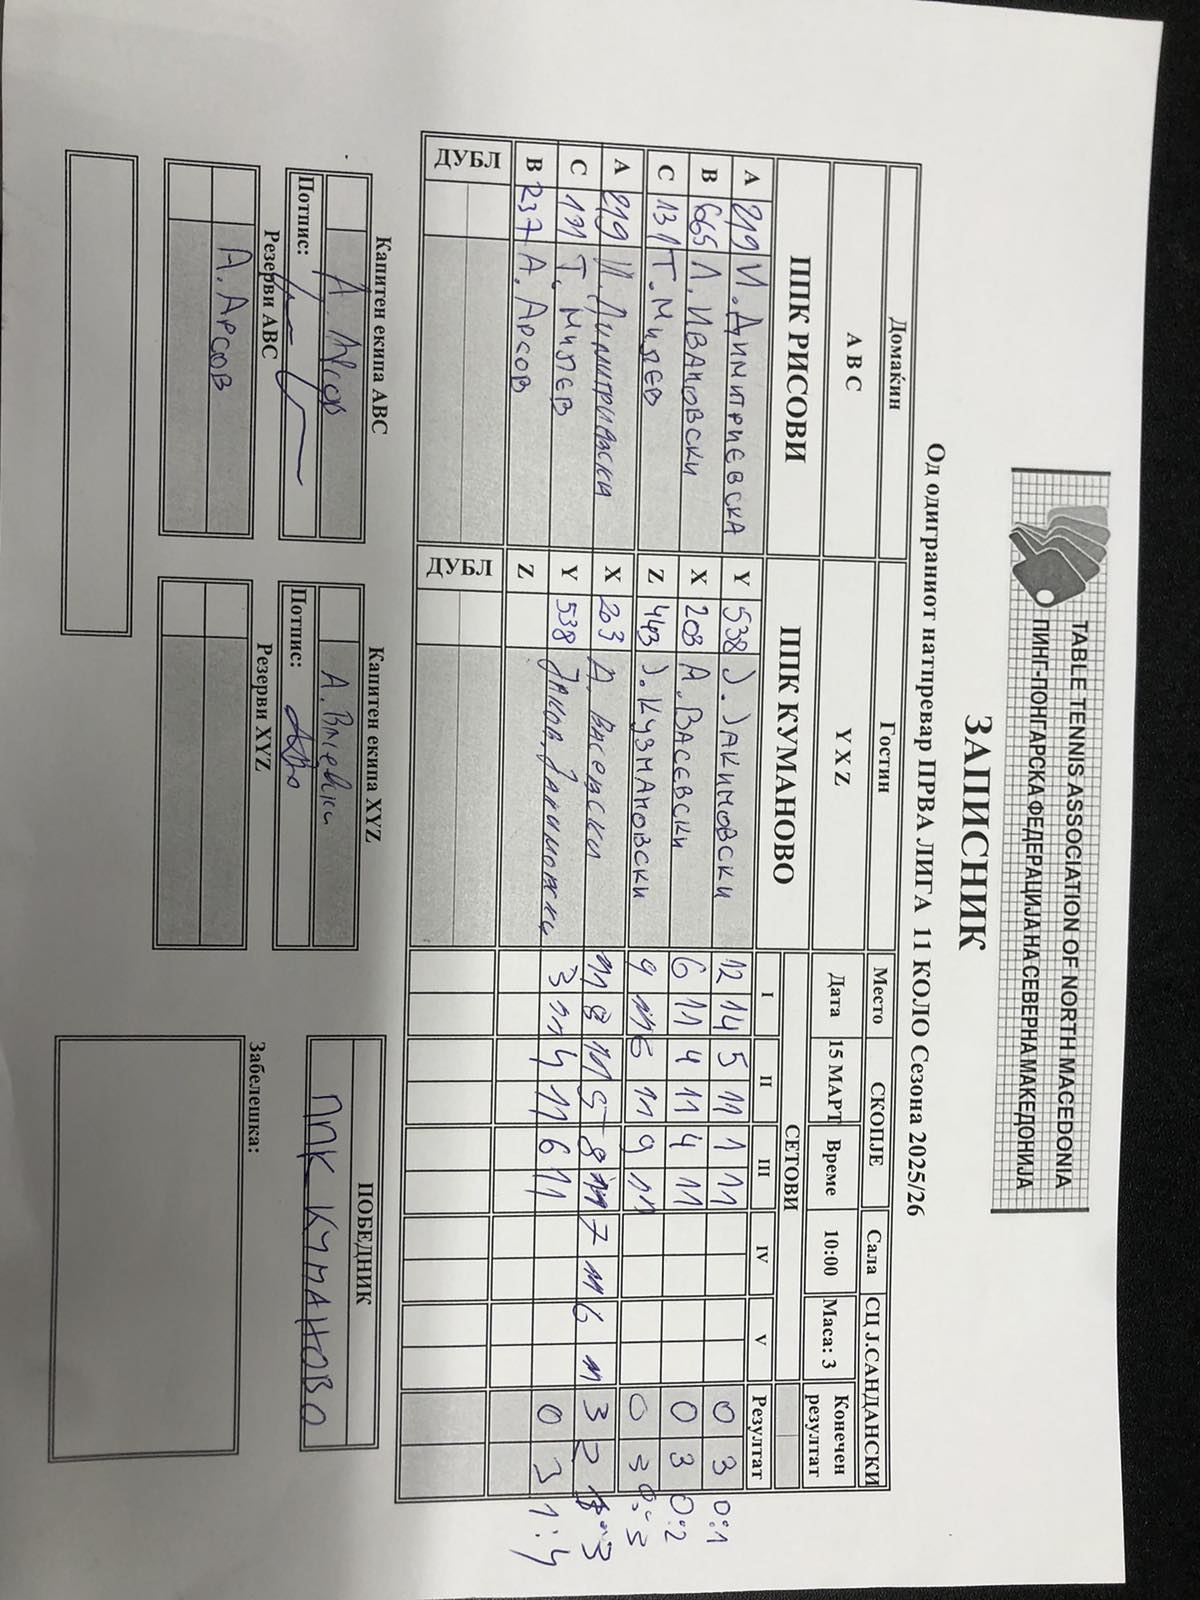 TABLE TENNIS ASSOCIATION OF NORTH MACEDONIA
ПИНГ-ПОНГАРСКА ФЕДЕРАЦИЈА НА СЕВЕРНА МАКЕДОНИЈА
ЗАПИСНИК
Од одиграниот натпревар ПРВА ЛИГА 11 КОЛО Сезона 2025/26
Домаќин Гостин Место СКОПЈЕ Сала СЦ Ј.САНДАНСКИ
A B C Y X Z Дата 15 МАРТ Време 10:00 Маса: 3 Конечен резултат
ППК РИСОВИ ППК КУМАНОВО СЕТОВИ
I II III IV V Резултат
A 219 И. ДИМИТРИЕВСКА Y 538 Ј. ЈАКИМОВСКИ 12 14 5 11 1 11 0 3 0:1
B 665 Л. ИВАНОВСКИ X 203 А. ВАСЕВСКИ 6 11 4 11 4 11 0 3 0:2
C 131 Т. МИЛЕВ Z 443 Ј. КУЗМАНОВСКИ 9 11 6 11 9 11 0 3 0:3
A 219 И. Димитриевска X 203 А. Васевски 11 8 11 5 8 11 7 11 6 11 3 2 :3
C 131 Т. МИЛЕВ Y 538 Јаков Јакимовски 3 11 4 11 6 11 0 3 1:4
B 237 А. АРСОВ Z
ДУБЛ ДУБЛ
Капитен екипа ABC Капитен екипа XYZ ПОБЕДНИК
А. Арсов А. Васевски ППК КУМАНОВО
Потпис: Потпис:
Резерви ABC Резерви XYZ Забелешка:
А. АРСОВ